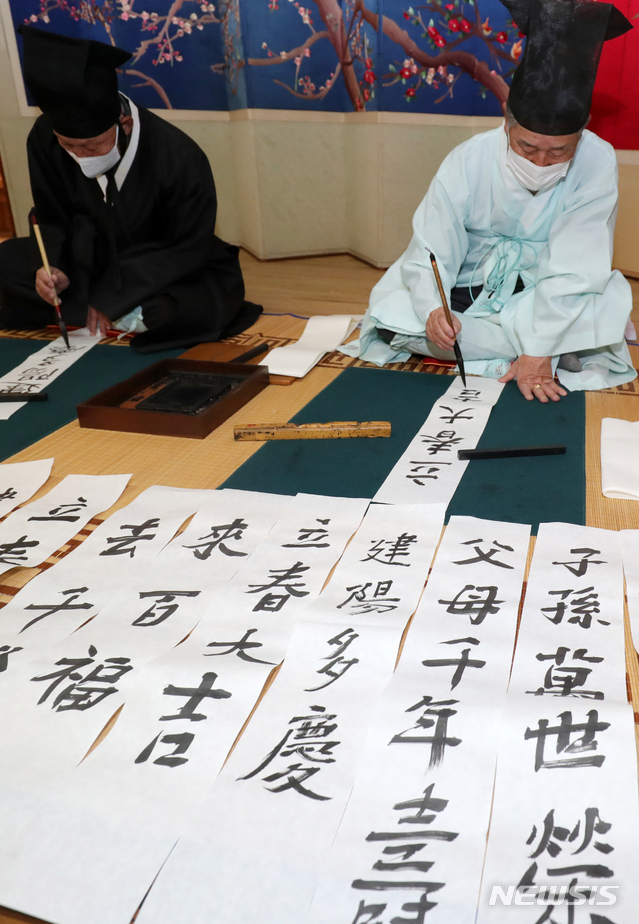 立春大吉
子孫萬世榮
父母千年壽
建陽多慶
立春大吉
來百福
去千
立
NEWSIS